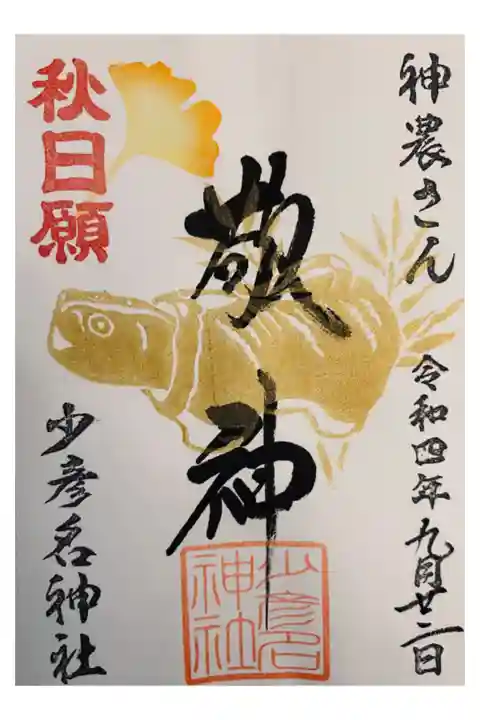 神農さん
令和四年九月廿二日
敬神
少彦名神社
秋日願
少彦名神社